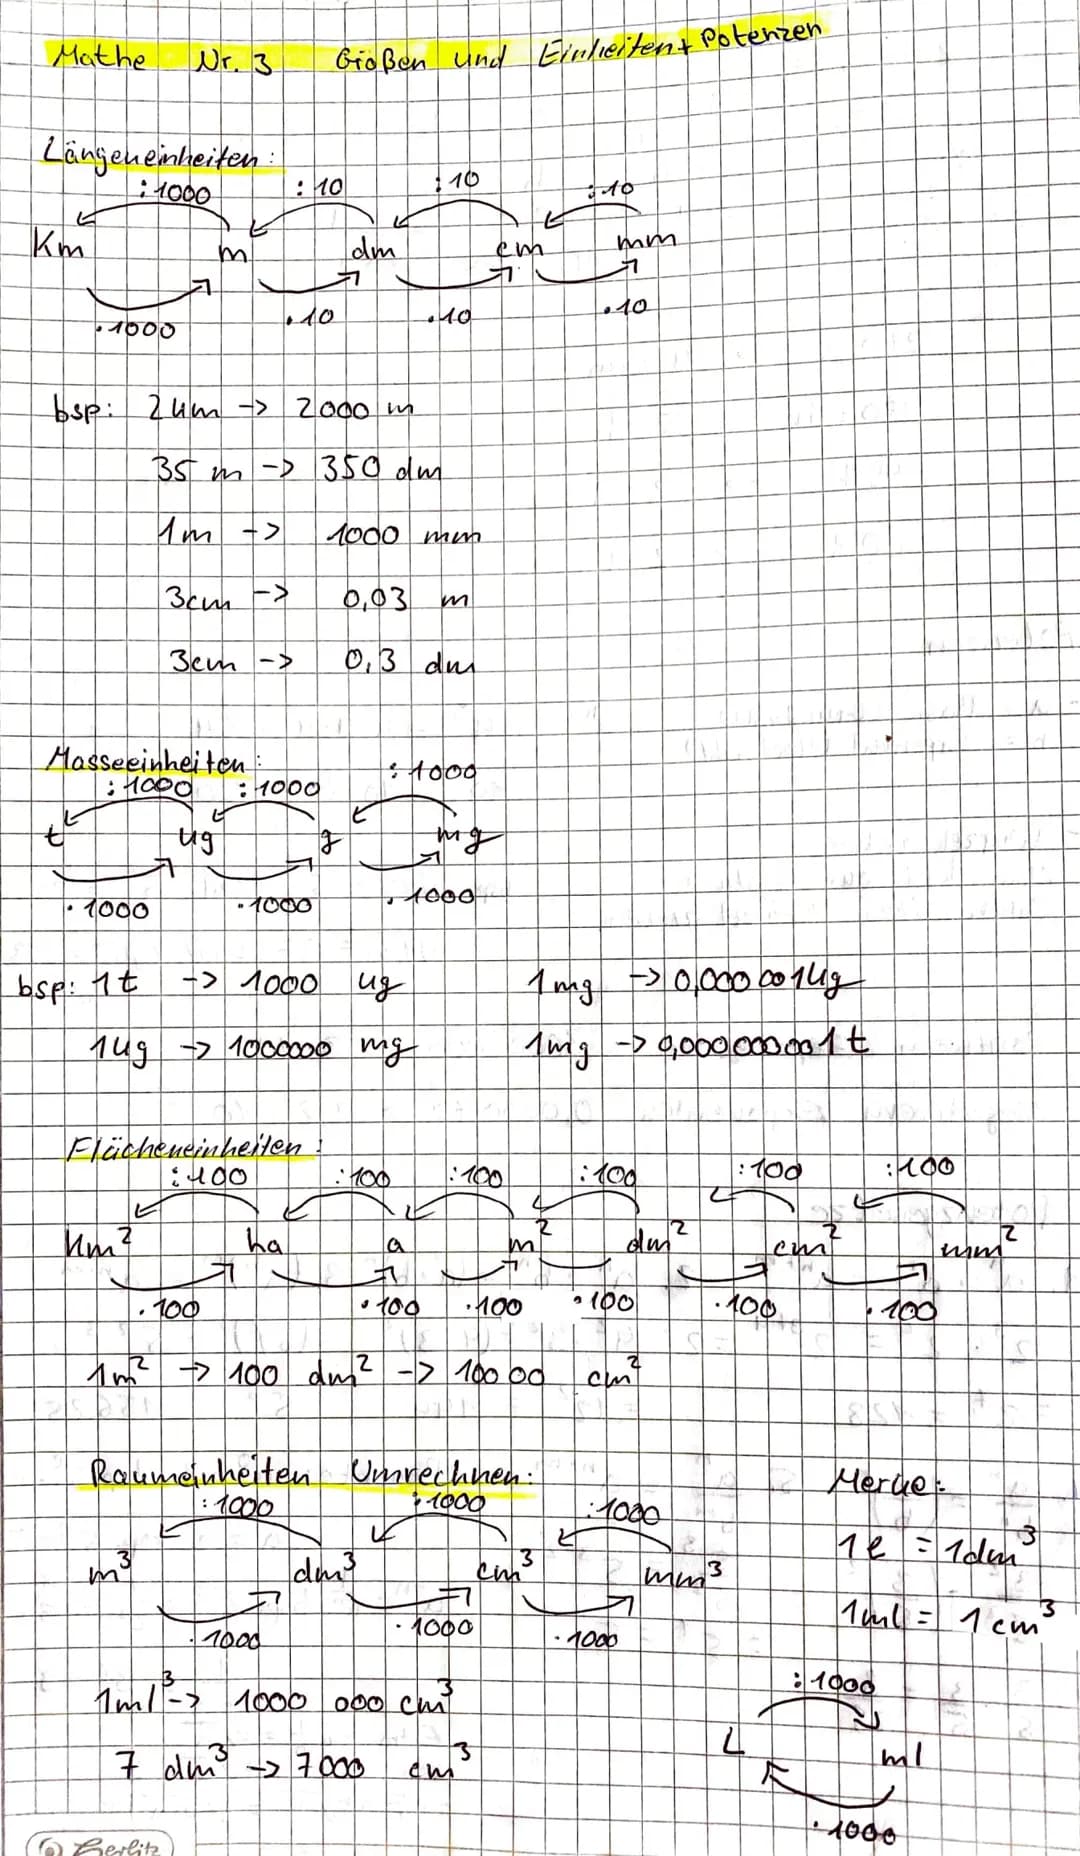 Mathe Nr. 3 Größen und Einheiten + Potenzen
Längeneinheiten:
:1000 :10 :10 :10
Km m dm cm mm
·1000 ·10 ·10 ·10
bsp: 2km -> 2000 m
35 m -> 350 dm
1m -> 1000 mm
3cm -> 0,03 m
3cm -> 0,3 dm
Masseeinheiten:
:1000 :1000 :1000
t kg g mg
·1000 ·1000 ·1000
bsp: 1t -> 1000 kg 1mg -> 0,000 001kg
1kg -> 1000000 mg 1mg -> 0,000 000 001 t
Flächeneinheiten:
:100 :100 :100 :100 :100 :100
km² ha a m² dm² cm² mm²
·100 ·100 ·100 ·100 ·100 ·100
1m² -> 100 dm² -> 10000 cm²
Raumeinheiten Umrechnen:
:1000 :1000 :1000
m³ dm³ cm³ mm³
·1000 ·1000 ·1000
1m³ -> 1000 000 cm³
7 dm³ -> 7000 cm³
Merke:
1l = 1dm³
1ml = 1cm³
:1000
L ml
·1000
Berlitz